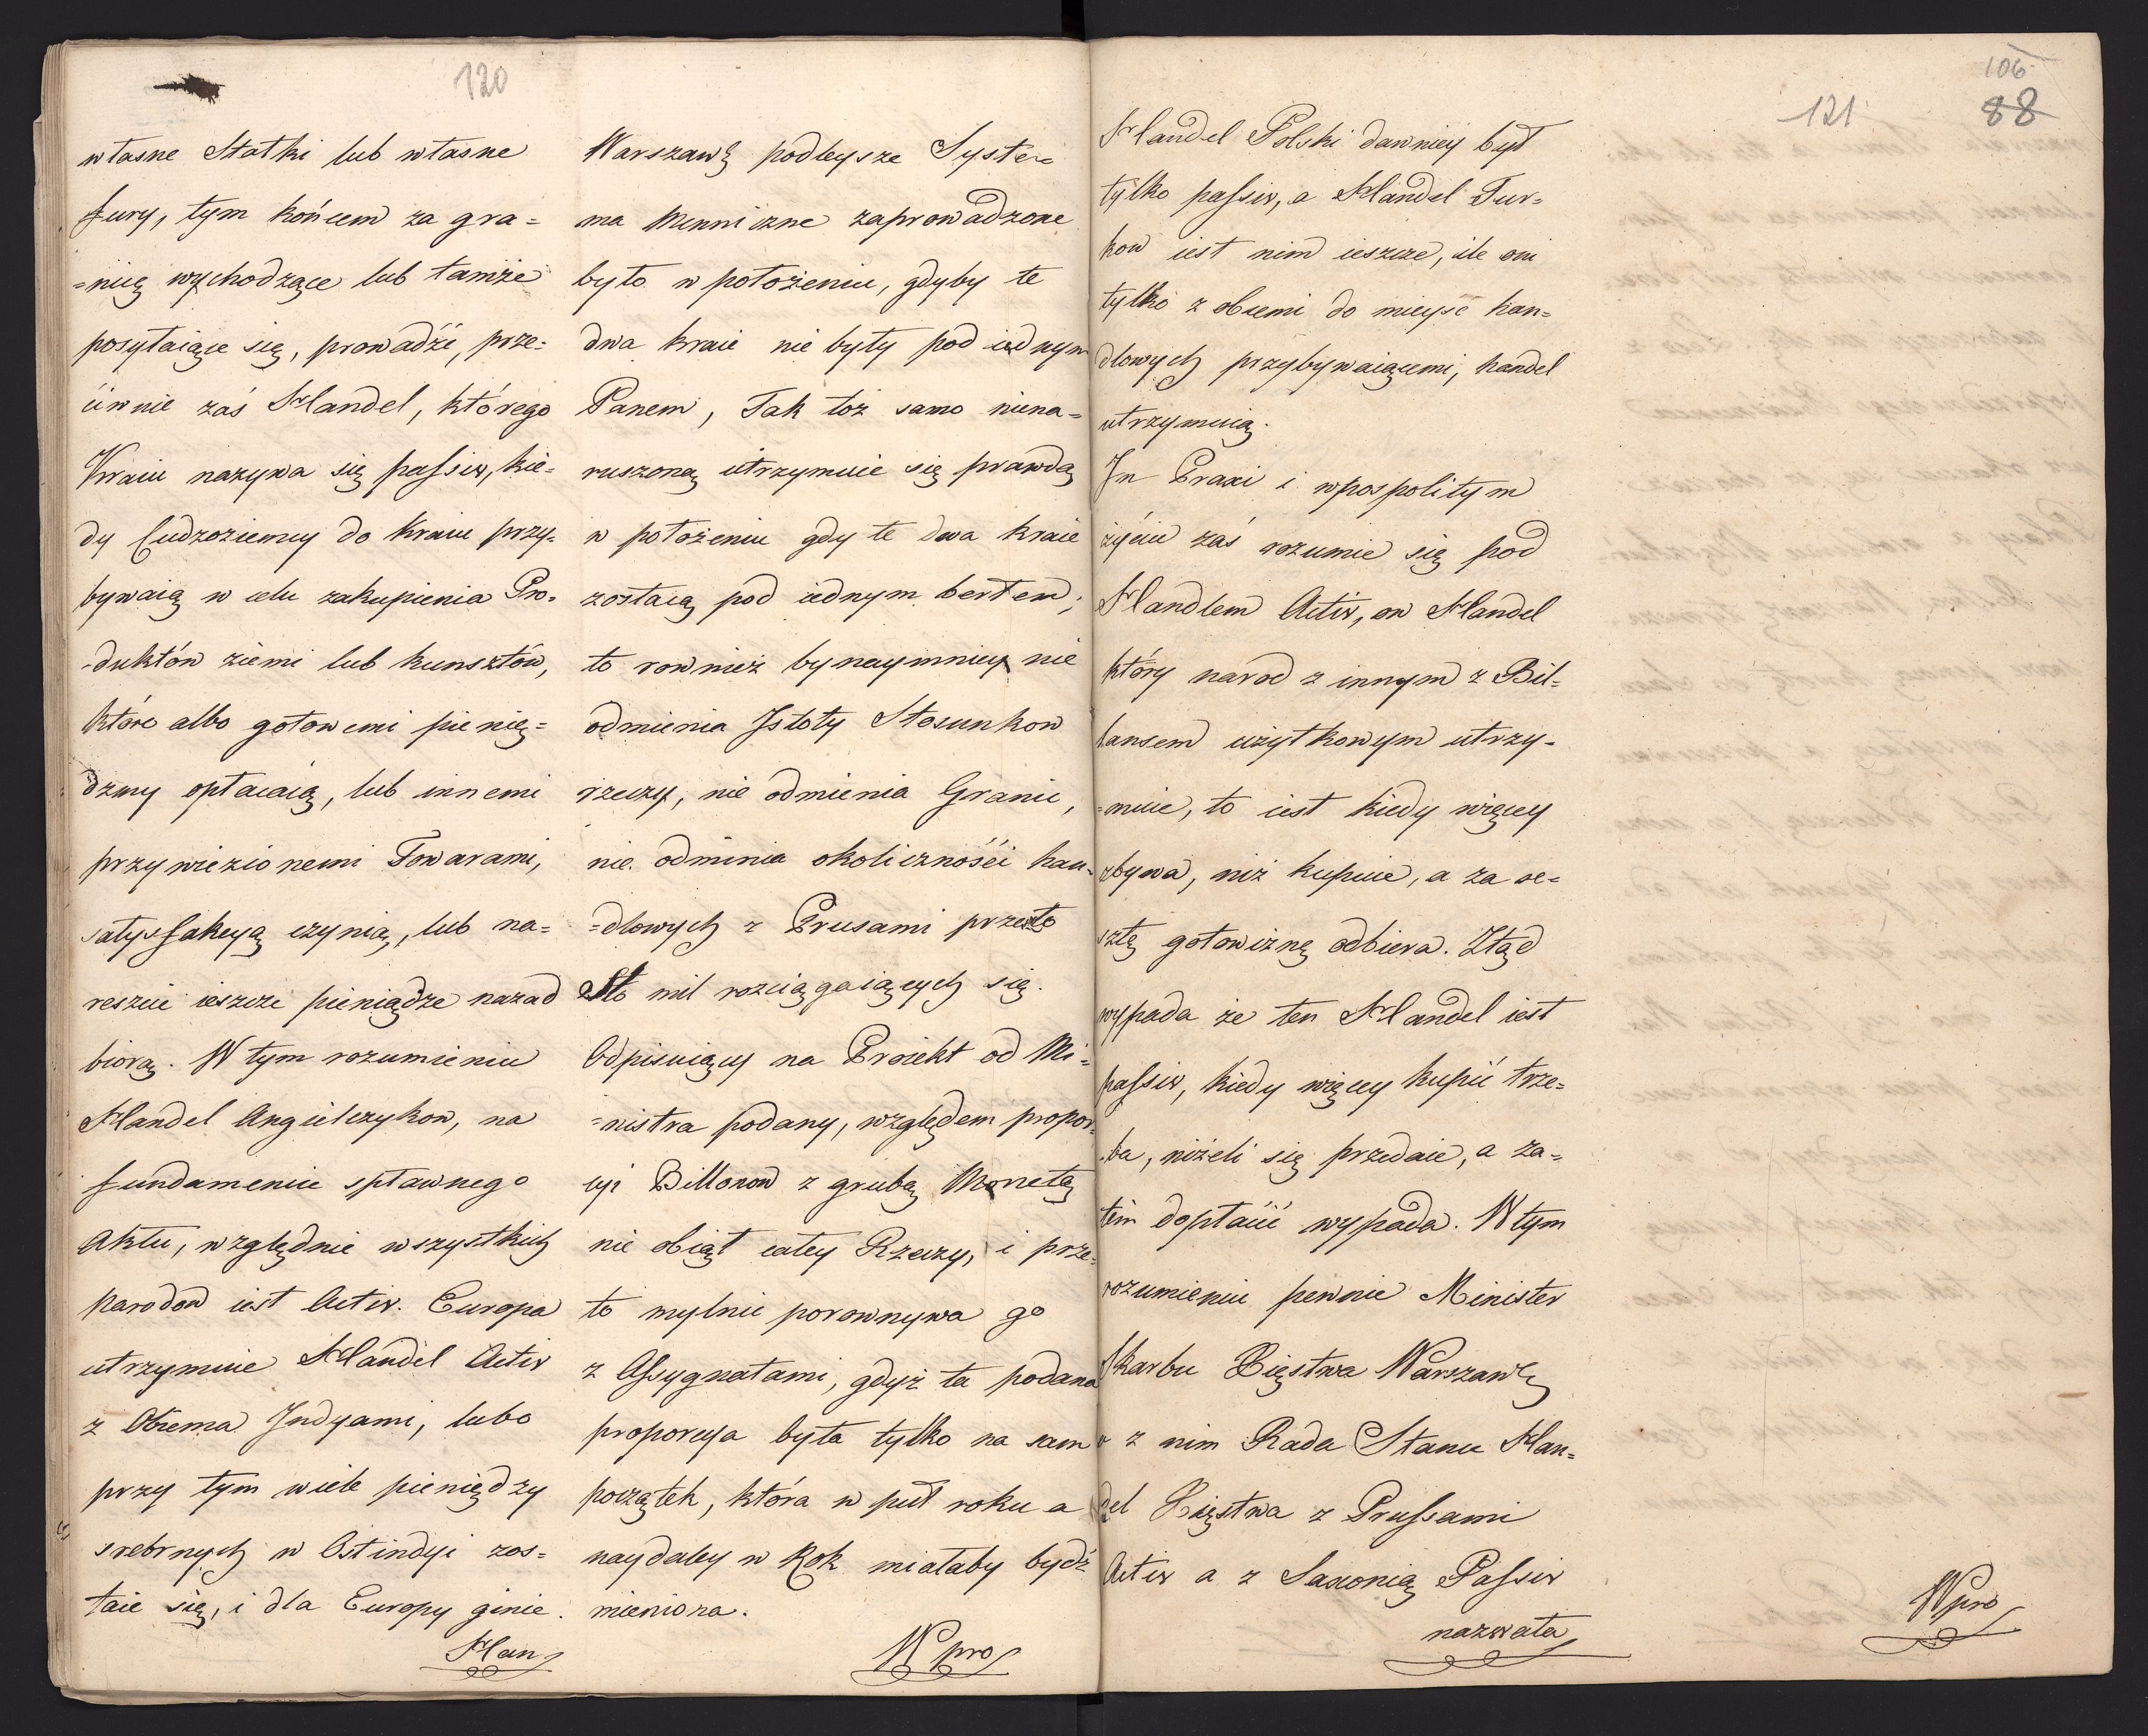 120
własne Statki lub własne
fury, tym końcem za gra=
=nicę wychodzące lub tamże
posyłaiące się, prowadźi, prze=
ciwnie zaś Handel, którego
Kraiu nazywa się passiv, kie=
dy Cudzoziemcy do Kraiu przy=
bywaią w celu zakupienia Pro=
=duktów ziemi lub kunsztów,
które albo gotowemi pienię=
dzmy opłacaią, lub innemi
przywiezionemi Towarami,
satysfakcyą czynią, lub na=
reszcie ieszcze pieniądze nazad
biorą. W tym rozumieniu
Handel Angielczykow, na
fundamencie spławnego
Aktu, względnie wszystkich
Narodow iest Activ. Europa
utrzymuie Handel Activ
z Obiema Jndyami, lubo
przy tym wiele pieniędzy
srebrnych w Ostindyi zos=
taie się, i dla Europy ginie.
Han
Warszawg podleysze Syste=
ma Menniczne zaprowadzone
było w położeniu, gdyby te
dwa kraie nie były pod iednym
Panem, Tak toż samo niena=
ruszoną utrzymuie się prawdą
w położeniu gdy te dwa kraie
zostaią pod iednym berłem;
to rownież bynaymniey nie
odmienia Jstoty Stosunkow
rzeczy, nie odmienia Granic,
nie odminia okolicznośći han=
=dlowych z Prusami przeszło
Sto mil rozciągaiących się.
Odpisuiący na Proiekt od Mi=
=nistra podany, względem propor=
cyi Billonow z grubą Monetą
nie obiął całey Rzeczy, i prze=
to mylnie porownywa go
z Assygnatami, gdyż ta podana
proporcya była tylko na sam
początek, która w puł roku a
naydaley w Rok miałaby bydź
mieniona.
W pro
106
121 88
Handel Polski dawniey był
tylko passiv, a Handel Tur=
kow iest nim ieszcze, ile oni
tylko z obcemi do mieysc han=
dlowych przybywaiącemi, handel
utrzymuią.
Jn Praxi i wpospolitym
życiu zaś rozumie się pod
Handlem Activ, on Handel
który narod z innym z Bil=
lansem użytkowym utrzy=
=muie, to iest kiedy więcey
zbywa, niż kupuie, a za re=
sztę gotowiznę odbiera. Ztąd
wypada że ten Handel iest
passiv, kiedy więcey kupić trze=
=ba, niżeli się przedaie, a za=
tem dopłacić wypada. W tym
rozumieniu pewnie Minister
Skarbu Xięstwa Warszawg
a z nim Rada Stanu Han=
del Xięstwa z Prussami
Activ a z Saxonią Passiv
nazwała
W pro